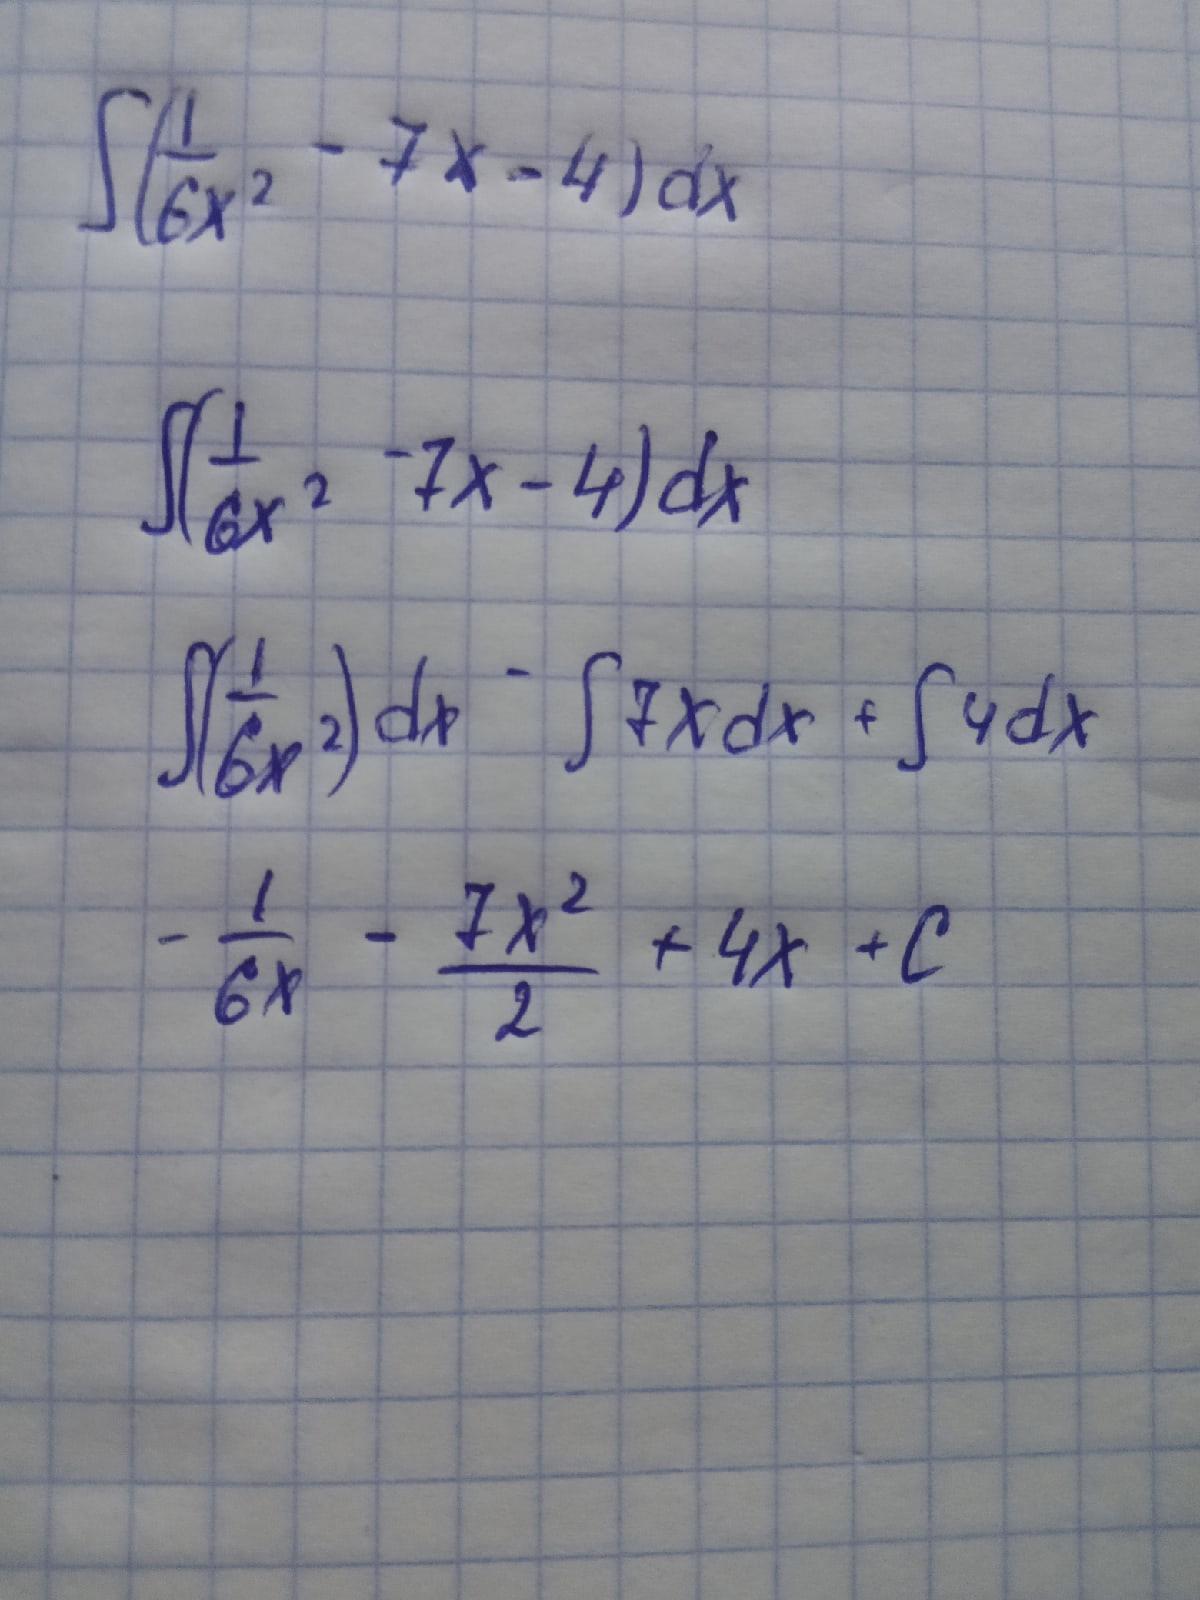 ∫(1/6x² - 7x - 4)dx
∫(1/6x² - 7x - 4)dx
∫(1/6x²)dx - ∫7xdx + ∫4dx
- 1/6x - 7x²/2 + 4x + C